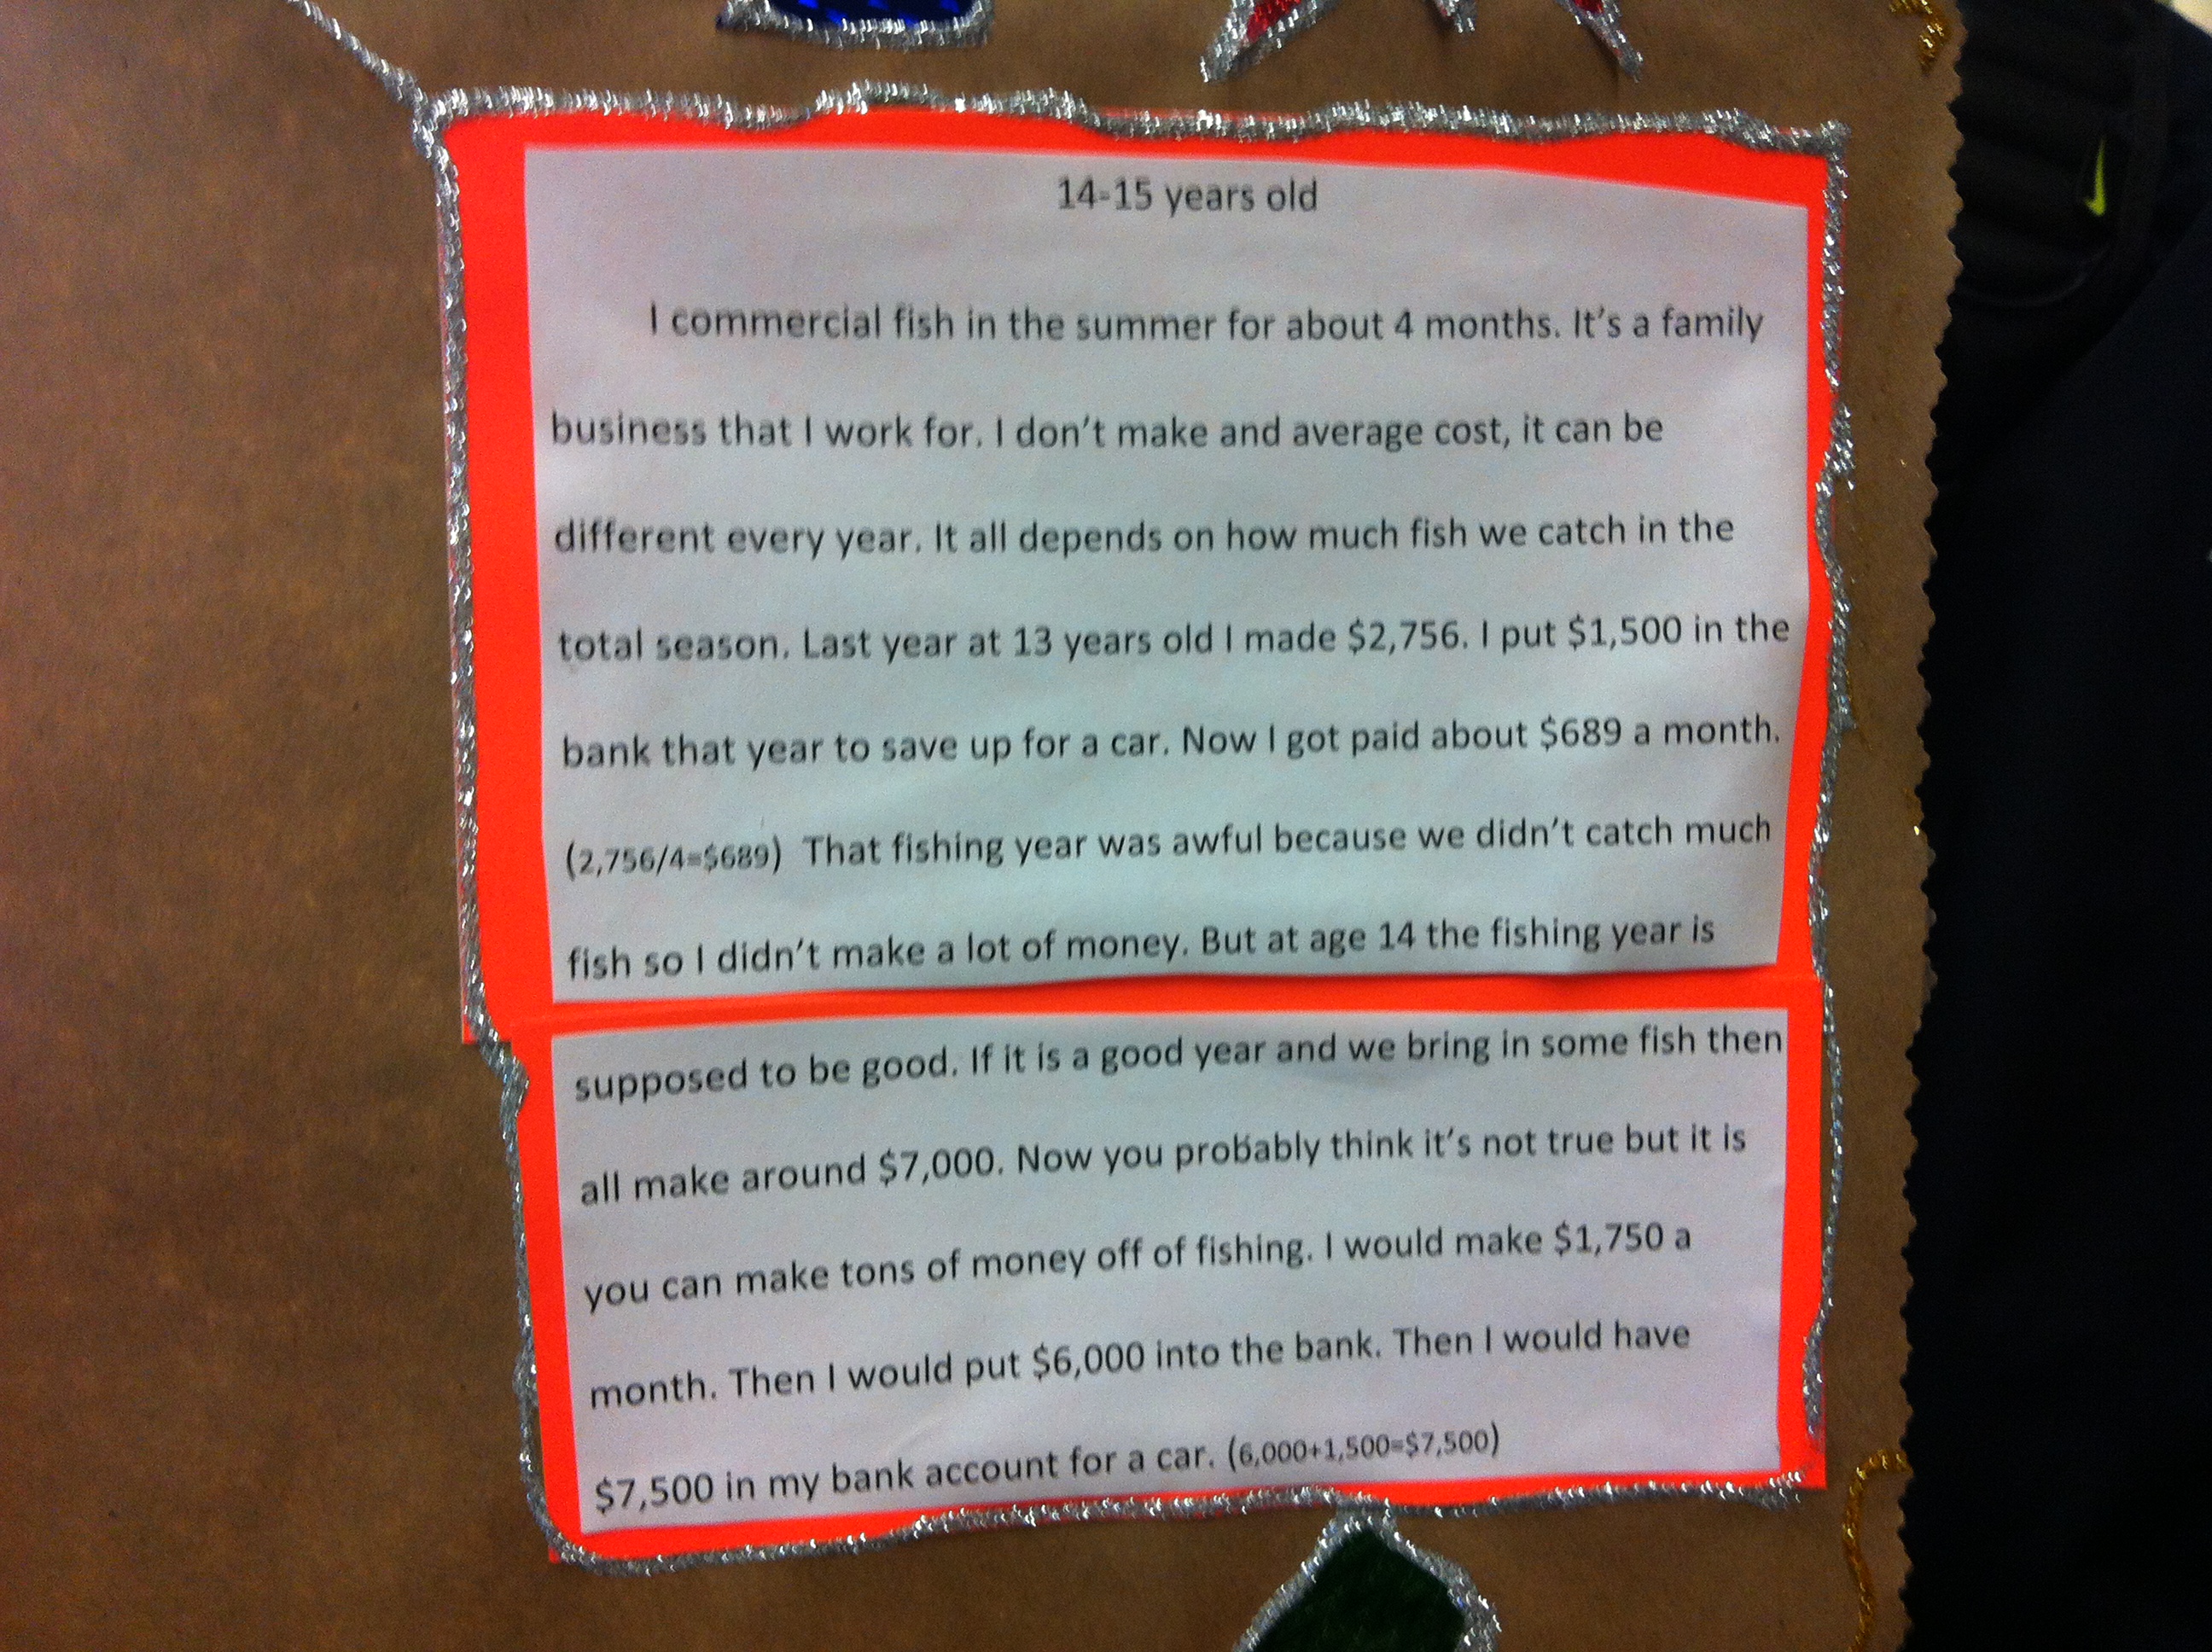 14-15 years old
I commercial fish in the summer for about 4 months. It's a family
business that I work for. I don't make and average cost, it can be
different every year. It all depends on how much fish we catch in the
total season. Last year at 13 years old I made $2,756. I put $1,500 in the
bank that year to save up for a car. Now I got paid about $689 a month.
(2,756/4=$689) That fishing year was awful because we didn't catch much
fish so I didn't make a lot of money. But at age 14 the fishing year is
supposed to be good. If it is a good year and we bring in some fish then
all make around $7,000. Now you probably think it's not true but it is
you can make tons of money off of fishing. I would make $1,750 a
month. Then I would put $6,000 into the bank. Then I would have
$7,500 in my bank account for a car. (6,000+1,500=$7,500)